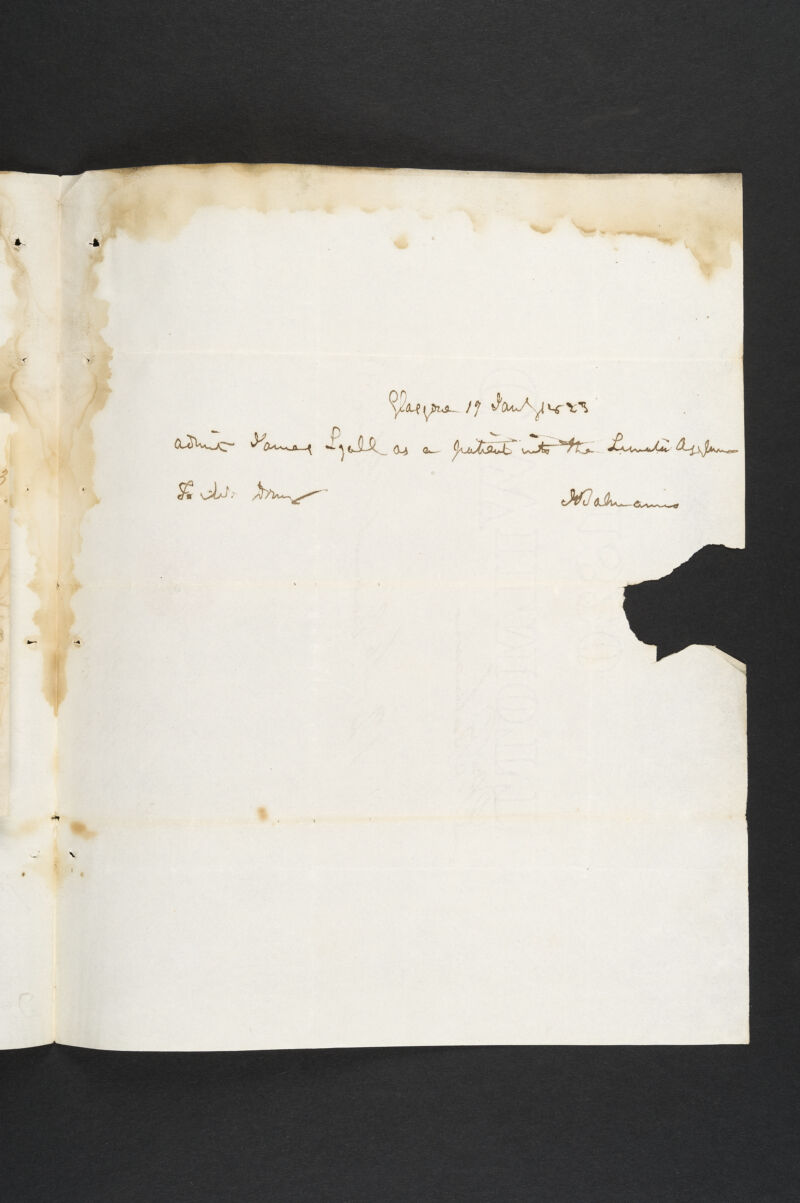 Glasgow 19 Jany 1823
admit James Lyall as a patient into the Lunatic Asylum
To Dr.
JBalmanno